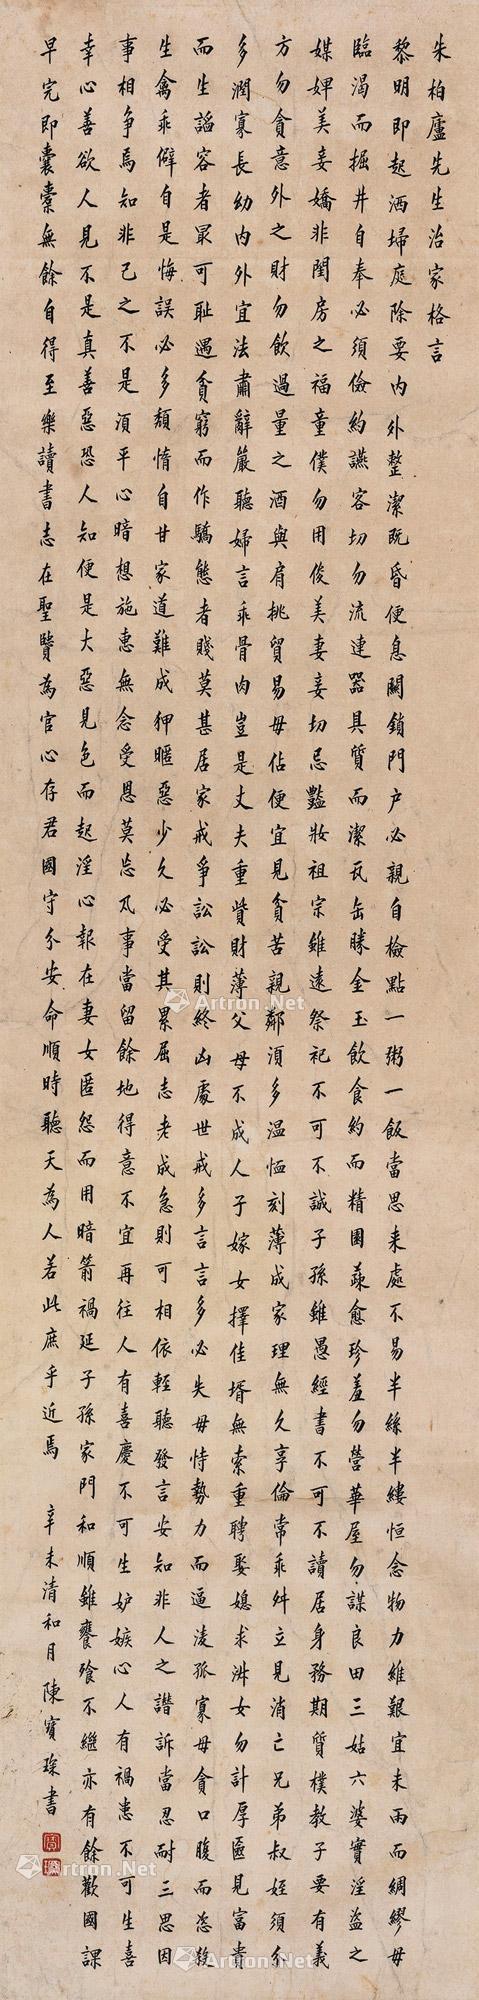 朱柏廬先生治家格言
黎明即起洒埽庭除要內外整潔既昏便息關鎖門户必親自檢點一粥一飯當思来處不易半絲半縷恒念物力維艱宜未雨而綢繆毋
臨渴而掘井自奉必須儉約讌客切勿流連器具質而潔瓦缶勝金玉飲食約而精園蔬愈珍羞勿營華屋勿謀良田三姑六婆實淫盜之
媒婢美妾嬌非閨房之福童僕勿用俊美妻妾切忌豔妝祖宗雖遠祭祀不可不誠子孫雖愚經書不可不讀居身務期質樸教子要有義
方勿貪意外之財勿飲過量之酒與肩挑貿易毋佔便宜見貧苦親鄰須多温恤刻薄成家理無久享倫常乖舛立見消亡兄弟叔姪須分
多潤寡長幼內外宜法肅辭嚴聽婦言乖骨肉豈是丈夫重貲財薄父母不成人子嫁女擇佳壻無索重聘娶媳求淑女勿計厚匳見富貴
而生謟容者㝡可耻遇貧窮而作驕態者賤莫甚居家戒爭訟訟則終凶處世戒多言言多必失毋恃勢力而逼淩孤寡毋貪口腹而恣殺
生禽乖僻自是悔誤必多頹惰自甘家道難成狎暱惡少久必受其累屈志老成急則可相依輕聽發言安知非人之譖訴當忍耐三思因
事相争焉知非己之不是須平心暗想施惠無念受恩莫忘凡事當留餘地得意不宜再往人有喜慶不可生妒嫉心人有禍患不可生喜
幸心善欲人見不是真善惡恐人知便是大惡見色而起淫心報在妻女匿怨而用暗箭禍延子孫家門和順雖饔飱不繼亦有餘歡國課
早完即囊橐無餘自得至樂讀書志在聖賢為官心存君國守分安命順時聽天為人若此庶乎近焉　辛未清和月陳寶琛書
Artron.Net
Artron.Net
Artron.Net
Artron.Net